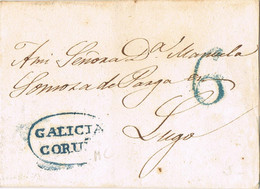 A mi Señora Dª Manuela
Somoza de Parga en
6
Lugo
GALICIA
CORUÑ